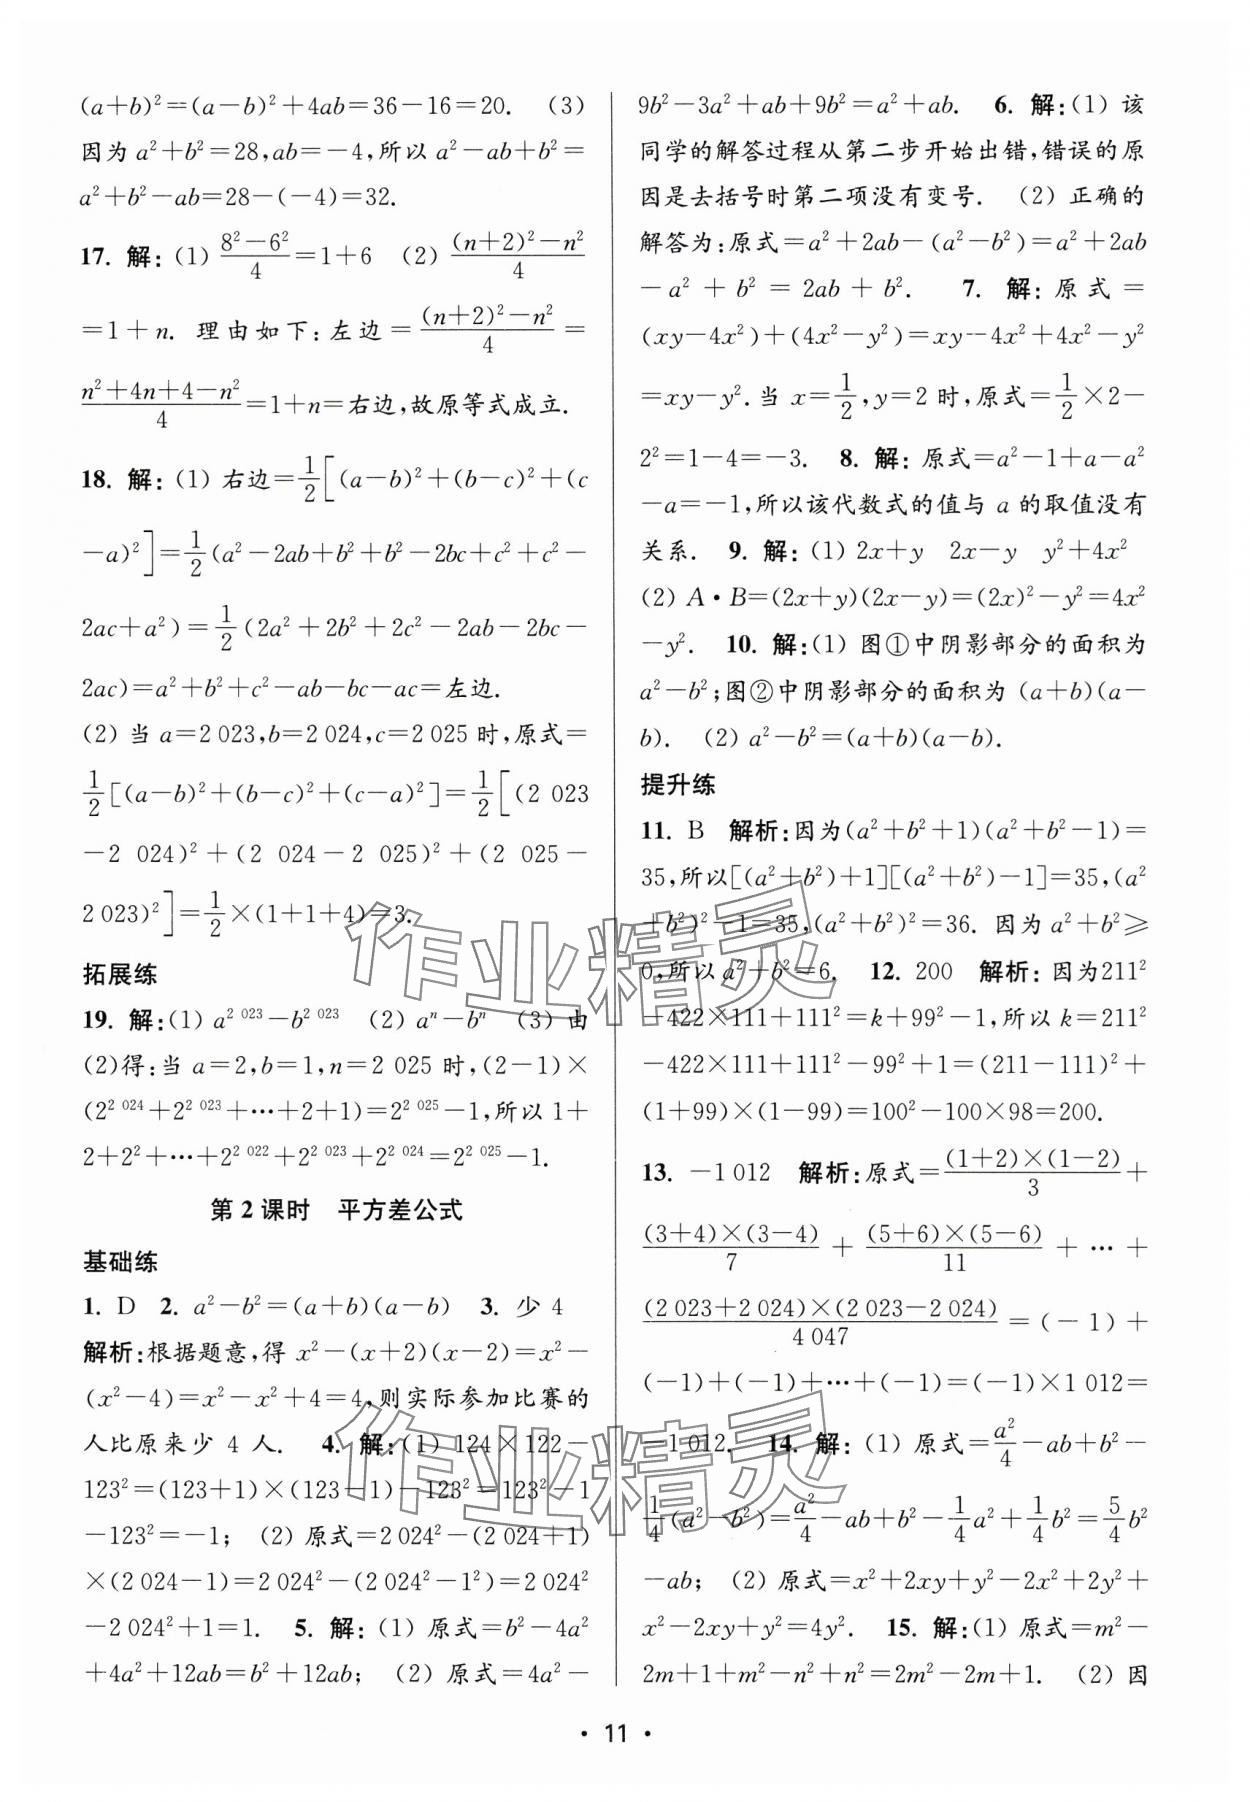 (a+b)²=(a−b)²+4ab=36−16=20. (3)
因为 a²+b²=28,ab=−4,所以 a²−ab+b²=
a²+b²−ab=28−(−4)=32.
17. 解:(1) (8²−6²)/4=1+6 (2) ((n+2)²−n²)/4
=1+n. 理由如下:左边=((n+2)²−n²)/4=
(n²+4n+4−n²)/4=1+n=右边,故原等式成立.
18. 解:(1) 右边=1/2[(a−b)²+(b−c)²+(c
−a)²]=1/2(a²−2ab+b²+b²−2bc+c²+c²−
2ac+a²)=1/2(2a²+2b²+2c²−2ab−2bc−
2ac)=a²+b²+c²−ab−bc−ac=左边.
(2) 当 a=2 023,b=2 024,c=2 025 时,原式=
1/2[(a−b)²+(b−c)²+(c−a)²]=1/2[(2 023
−2 024)²+(2 024−2 025)²+(2 025−
2 023)²]=1/2×(1+1+4)=3.
拓展练
19. 解:(1) a^(2 023)−b^(2 023) (2) aⁿ−bⁿ (3) 由
(2)得:当 a=2,b=1,n=2 025 时,(2−1)×
(2^(2 024)+2^(2 023)+⋯+2+1)=2^(2 025)−1,所以 1+
2+2²+⋯+2^(2 022)+2^(2 023)+2^(2 024)=2^(2 025)−1.
第 2 课时 平方差公式
基础练
1. D 2. a²−b²=(a+b)(a−b) 3. 少 4
解析:根据题意,得 x²−(x+2)(x−2)=x²−
(x²−4)=x²−x²+4=4,则实际参加比赛的
人比原来少 4 人. 4. 解:(1) 124×122−
123²=(123+1)×(123−1)−123²=123²−1
−123²=−1; (2) 原式=2 024²−(2 024+1)
×(2 024−1)=2 024²−(2 024²−1²)=2 024²
−2 024²+1=1. 5. 解:(1) 原式=b²−4a²
+4a²+12ab=b²+12ab; (2) 原式=4a²−
9b²−3a²+ab+9b²=a²+ab. 6. 解:(1) 该
同学的解答过程从第二步开始出错,错误的原
因是去括号时第二项没有变号. (2) 正确的
解答为:原式=a²+2ab−(a²−b²)=a²+2ab
−a²+b²=2ab+b². 7. 解:原式=
(xy−4x²)+(4x²−y²)=xy−4x²+4x²−y²
=xy−y².当 x=1/2,y=2 时,原式=1/2×2−
2²=1−4=−3. 8. 解:原式=a²−1+a−a²
−a=−1,所以该代数式的值与 a 的取值没有
关系. 9. 解:(1) 2x+y 2x−y y²+4x²
(2) A·B=(2x+y)(2x−y)=(2x)²−y²=4x²
−y². 10. 解:(1) 图①中阴影部分的面积为
a²−b²;图②中阴影部分的面积为 (a+b)(a−
b). (2) a²−b²=(a+b)(a−b).
提升练
11. B 解析:因为(a²+b²+1)(a²+b²−1)=
35,所以[(a²+b²)+1][(a²+b²)−1]=35,(a²
+b²)²−1=35,(a²+b²)²=36. 因为 a²+b²≥
0,所以 a²+b²=6. 12. 200 解析:因为211²
−422×111+111²=k+99²−1,所以 k=211²
−422×111+111²−99²+1=(211−111)²+
(1+99)×(1−99)=100²−100×98=200.
13. −1 012 解析:原式=((1+2)×(1−2))/3+
((3+4)×(3−4))/7+((5+6)×(5−6))/11+⋯+
((2 023+2 024)×(2 023−2 024))/4 047=(−1)+
(−1)+(−1)+⋯+(−1)=(−1)×1 012=
−1 012. 14. 解:(1) 原式=a²/4−ab+b²−
1/4(a²−b²)=a²/4−ab+b²−1/4a²+1/4b²=5/4b²
−ab; (2) 原式=x²+2xy+y²−2x²+2y²+
x²−2xy+y²=4y². 15. 解:(1) 原式=m²−
2m+1+m²−n²+n²=2m²−2m+1. (2) 因
· 11 ·
作业精灵
作业精灵